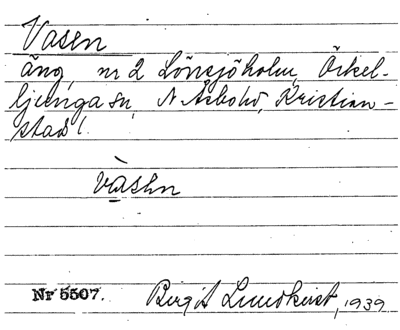 Vasen
äng, nr 2 Lönsjöholm, Örkel-
ljunga sn, N Åsbohd, Kristian-
stad l.
vàsen
Nr 5507. Birgit Lundkvist, 1939